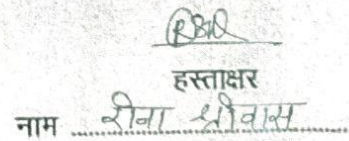 हस्ताक्षर
नाम रीना श्रीवास